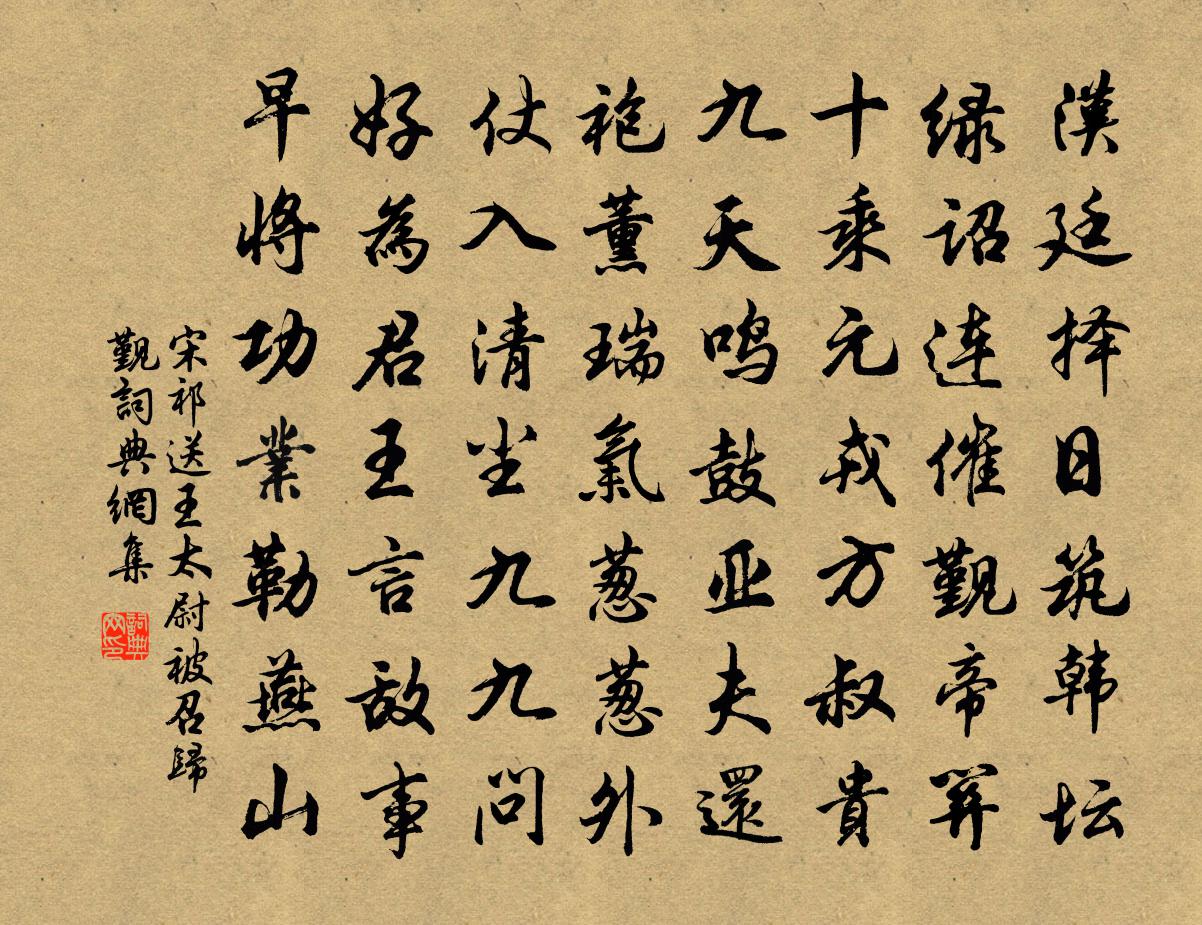 漢廷择日筑韩坛
绿诏连催覲帝関
十乘元戎方叔貴
九天鸣鼓亚夫還
袍薰瑞氣葱葱外
仗入清尘九九问
好為君王言敌事
早将功業勒燕山
宋祁送王太尉被召歸
覲詞典網集
詞典网印